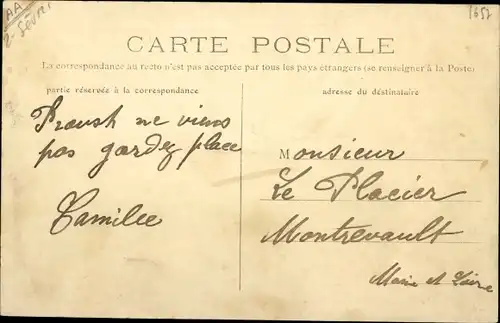 AA
2-Sèvres
1657
CARTE POSTALE
La correspondance au recto n'est pas acceptée par tous les pays étrangers (se renseigner à la Poste)
partie réservée à la correspondance
adresse du destinataire
Proush ne viens
pas gardez place
Camille
Monsieur
Le Placier
Montrevault
Maine et Loire